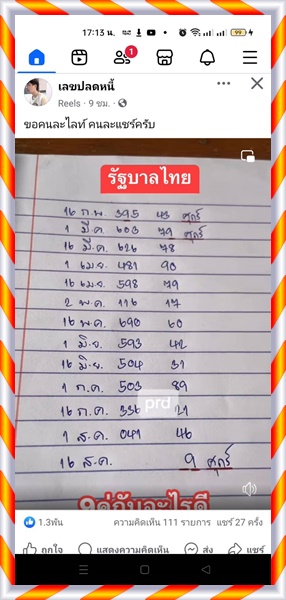 17:13 น.
99
1
เลขปลดหนี้
Reels · 9 ชม. ·
ขอคนละไลท์ คนละแชร์ครับ
รัฐบาลไทย
16 ก.พ 395 43 ศุกร์
1 มี.ค 603 79 ศุกร์
16 มี.ค. 626 78
1 เมย. 481 90
16 เมย. 598 79
2 พ.ค. 116 17
16 พ.ค. 690 60
1 มิ.ย. 593 42
16 มิ.ย. 504 31
1 ก.ค. 503 89
16 ก.ค. 336 21
prd
1 ส.ค. 041 46
16 ส.ค. 9 ศุกร์
9คู่กับอะไรดี
1.3พัน ความคิดเห็น 111 รายการ แชร์ 27 ครั้ง
ถูกใจ แสดงความคิดเห็น ส่ง แชร์